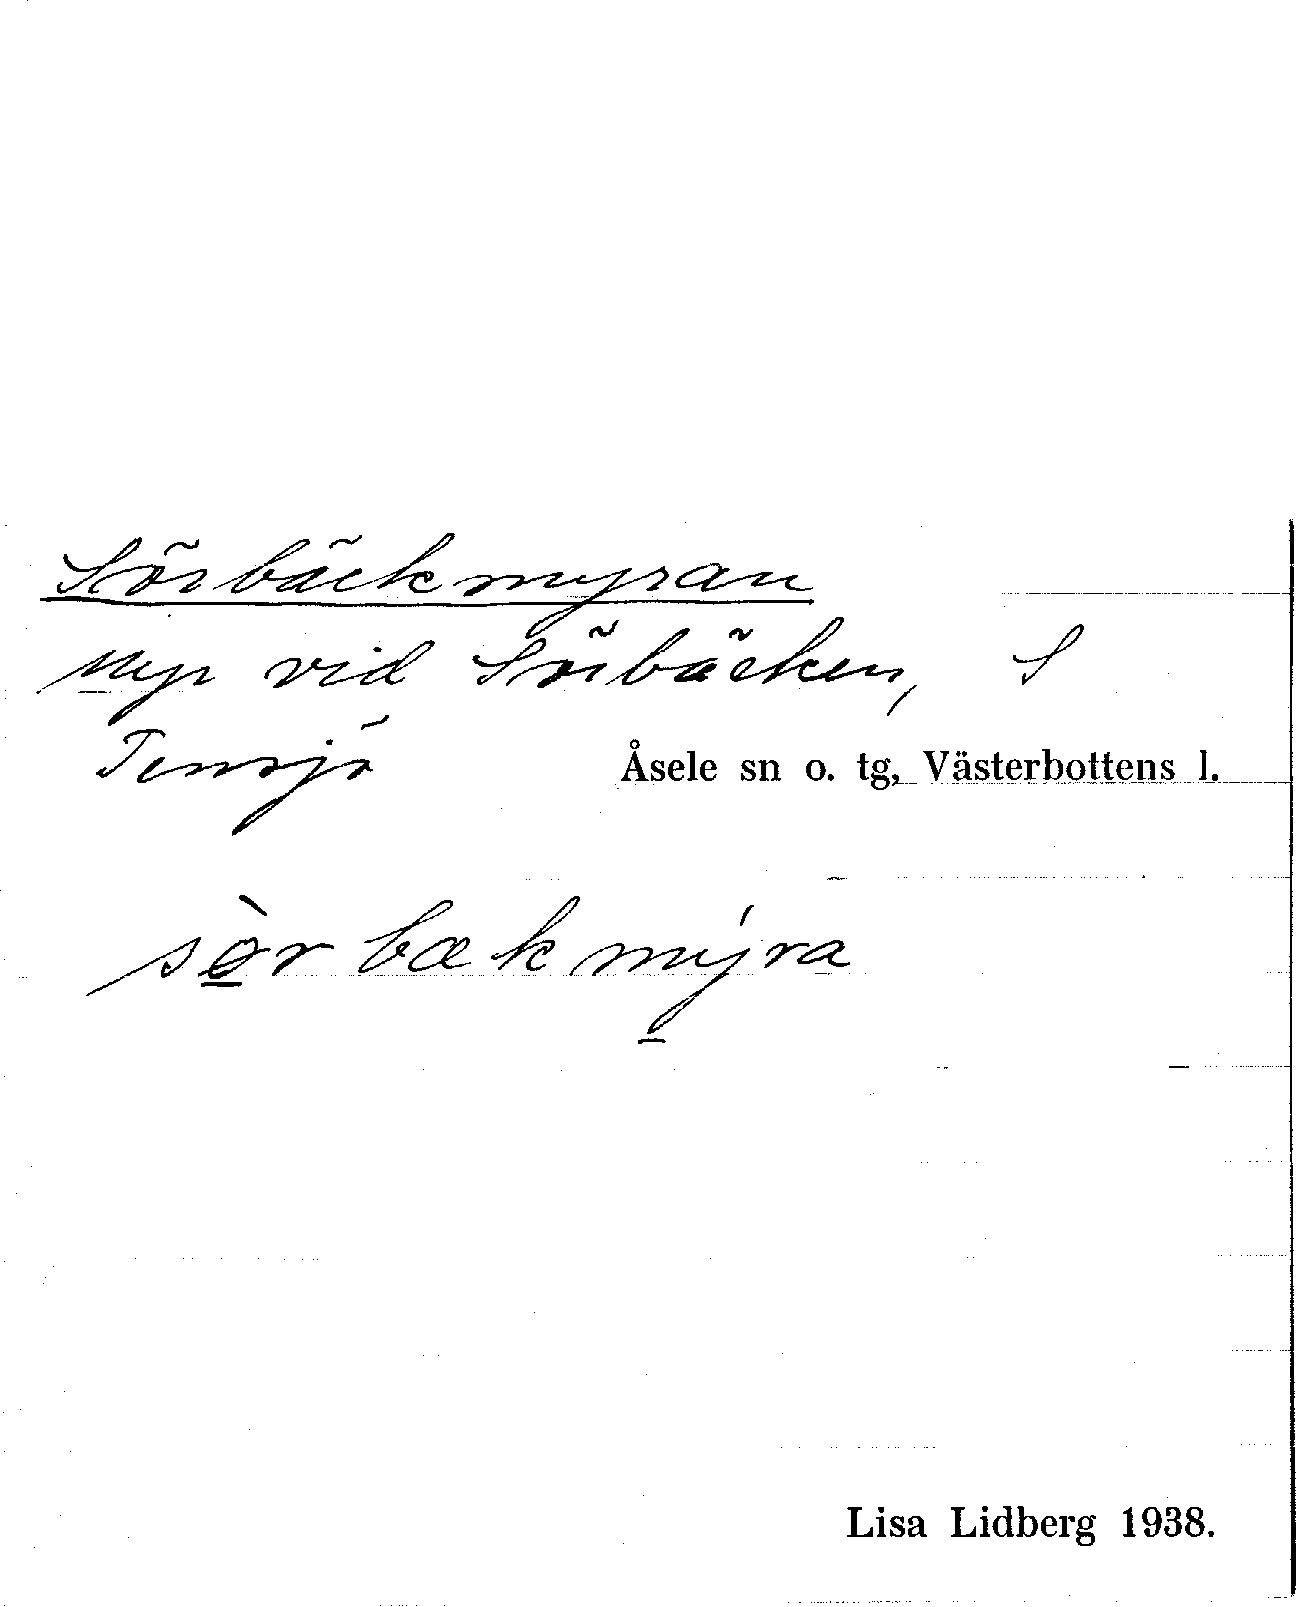 Sörbäckmyran
myr vid Sörbäcken, S
Tensjö Åsele sn o. tg, Västerbottens l.
sòrbækmýra
Lisa Lidberg 1938.